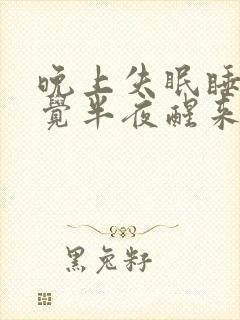 晚上失眠睡
覺半夜醒来
黑兔籽